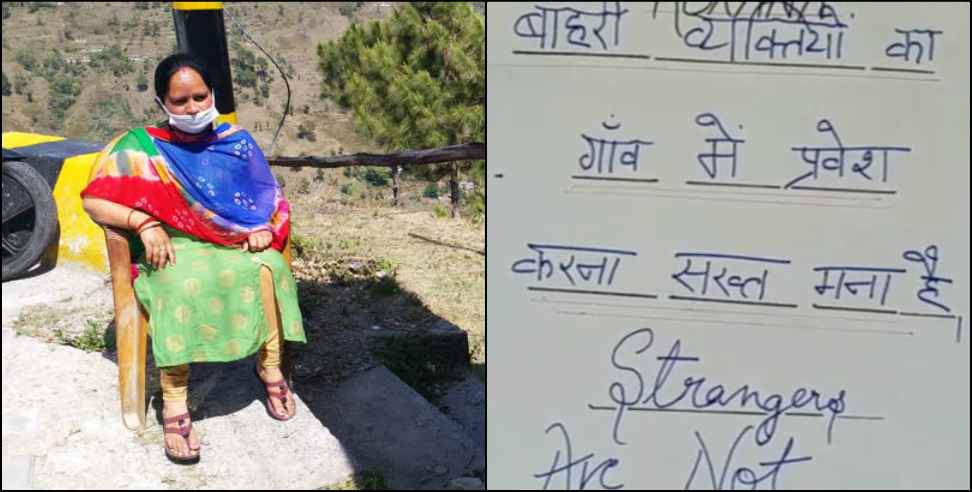 बाहरी व्यक्तियों का
गाँव में प्रवेश
करना सख्त मना है,
Strangers
Are Not